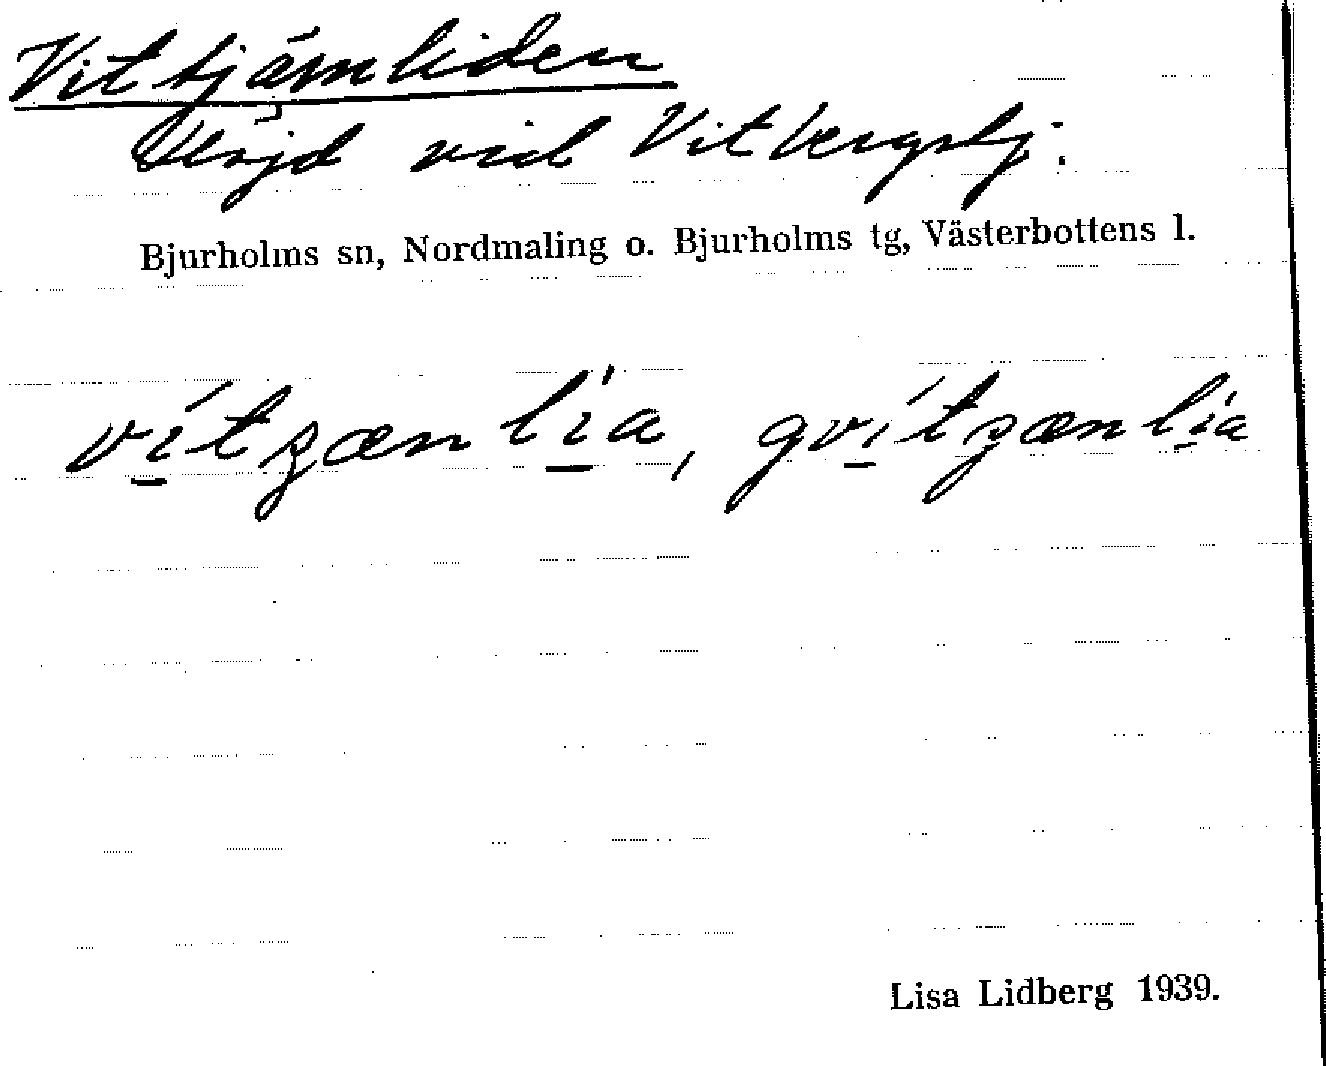 Vittjärnliden
Höjd vid Vitbergstj.
Bjurholms sn, Nordmaling o. Bjurholms tg, Västerbottens l.
ví̲tʒæn lí̲a, gví̲tʒænlí̲a
Lisa Lidberg 1939.